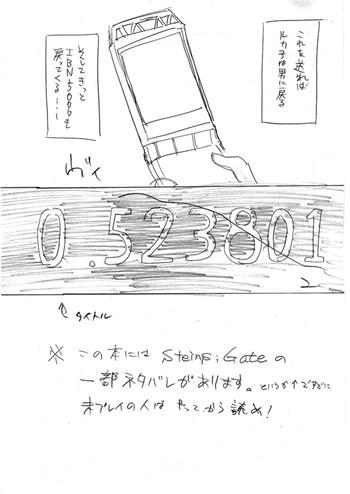 これを送れば
ルカ子は男に戻る
そしてきっと
IBN5000も
戻ってくる……
ヴィ
0.523801
↑
タイトル
※ この本には Steins;Gateの
一部ネタバレがあります。というか↑ですでに
未プレイの人は やってから読め!